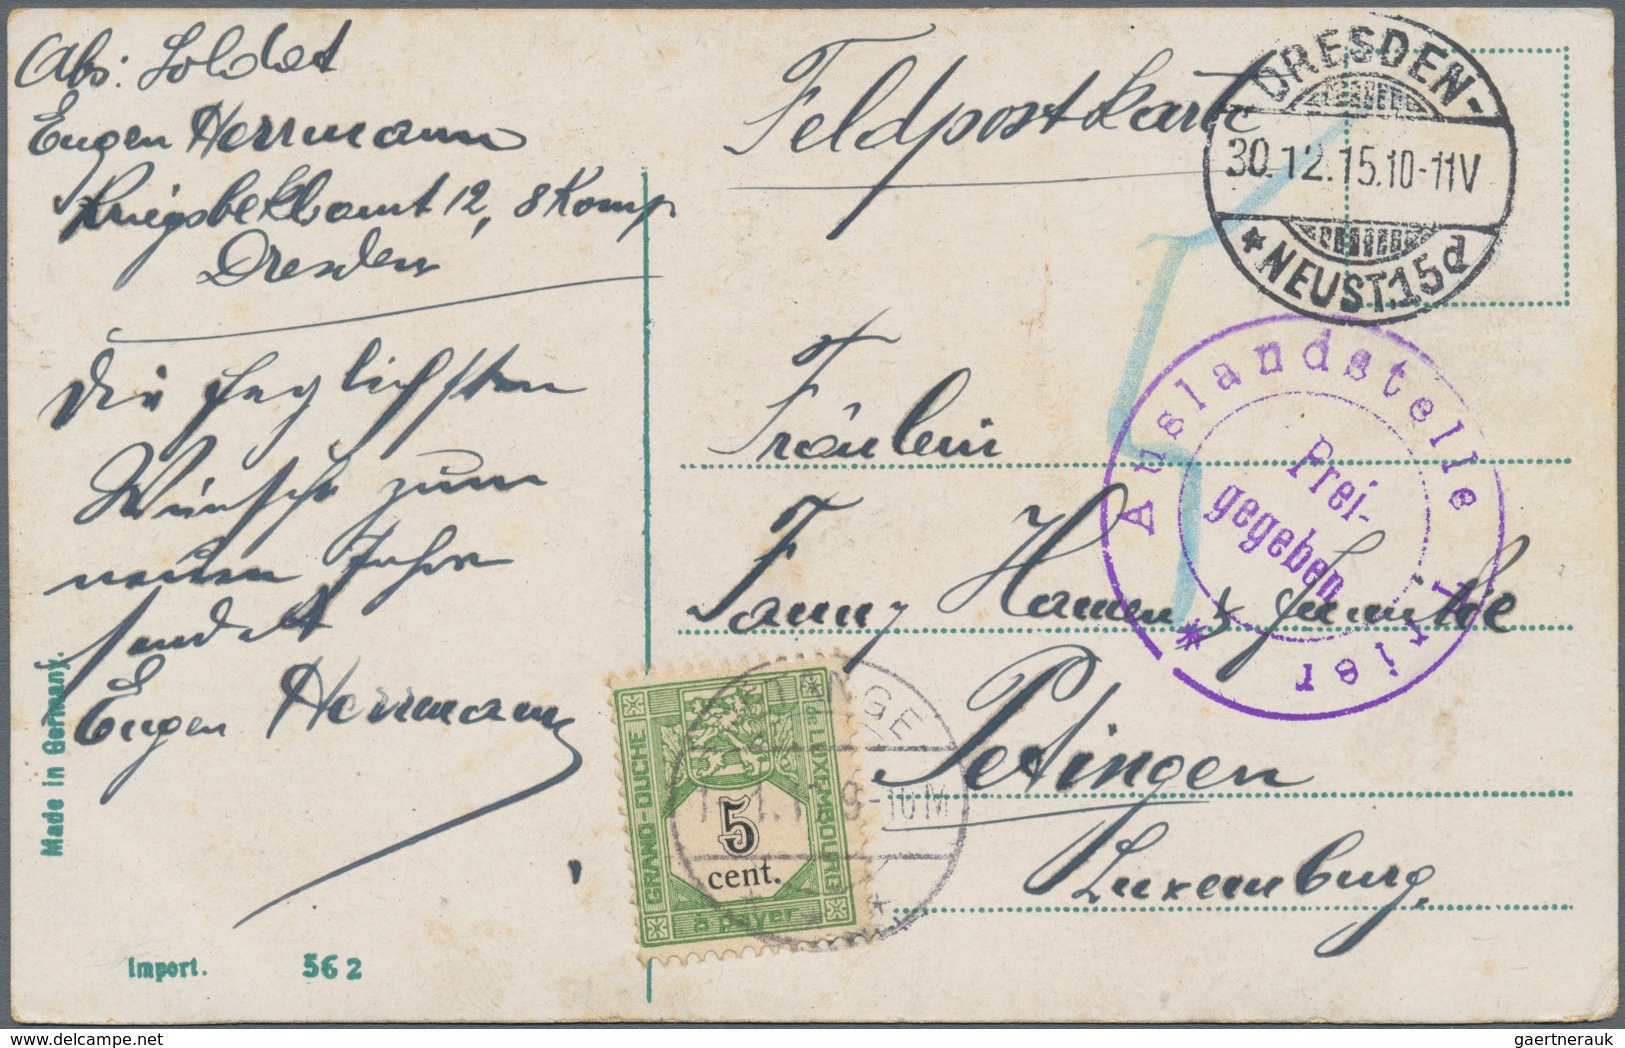 Abs: Soldat
Eugen Herrmann
Kriegsbekl.amt 12, 8 Komp
Dresden
Die herzlichsten
Wünsche zum
neuen Jahre
sendet
Eugen Herrmann
Made in Germany.
Import. 562
Feldpostkarte
DRESDEN-
30.12.15.10-11V
* NEUST.15d
Auslandstelle Trier *
Frei-
gegeben
Fräulein
Fanny Hamen
Petingen
Luxemburg.
GRAND-DUCHÉ de LUXEMBOURG
5
cent.
à payer
gaertnerauk